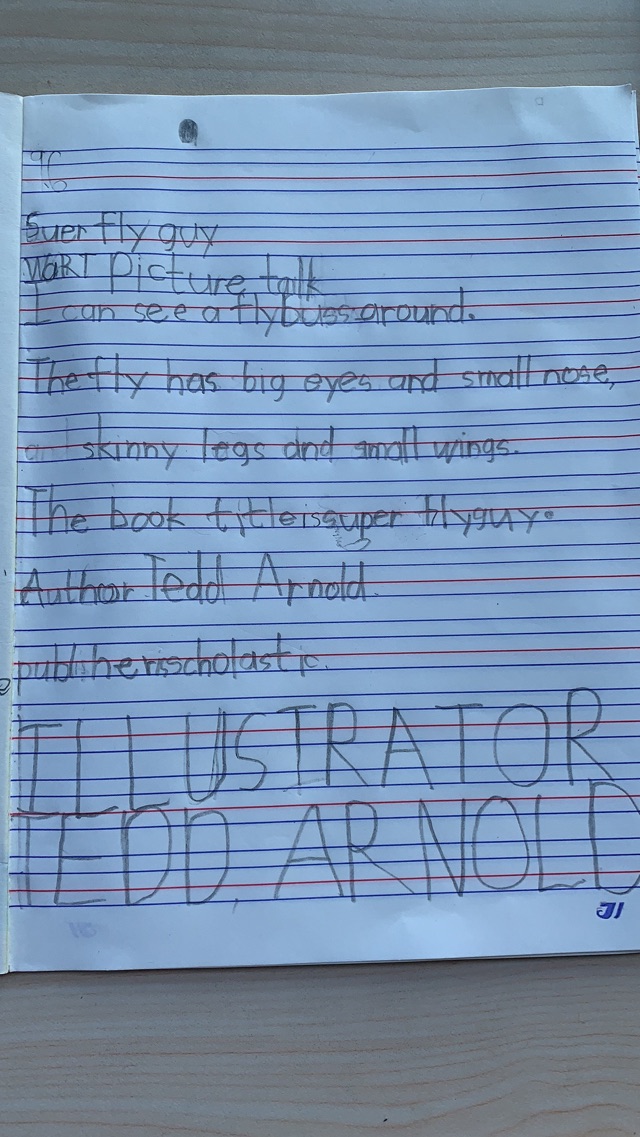 96
Suer fly guy
WaRT Picture talk
I can see a fly buss around.
The fly has big eyes and small nose,
and skinny legs and small wings.
The book title is super fly guy.
Author Tedd Arnold.
publiher is scholastic.
ILLUSTRATOR
TEDD. ARNOLD